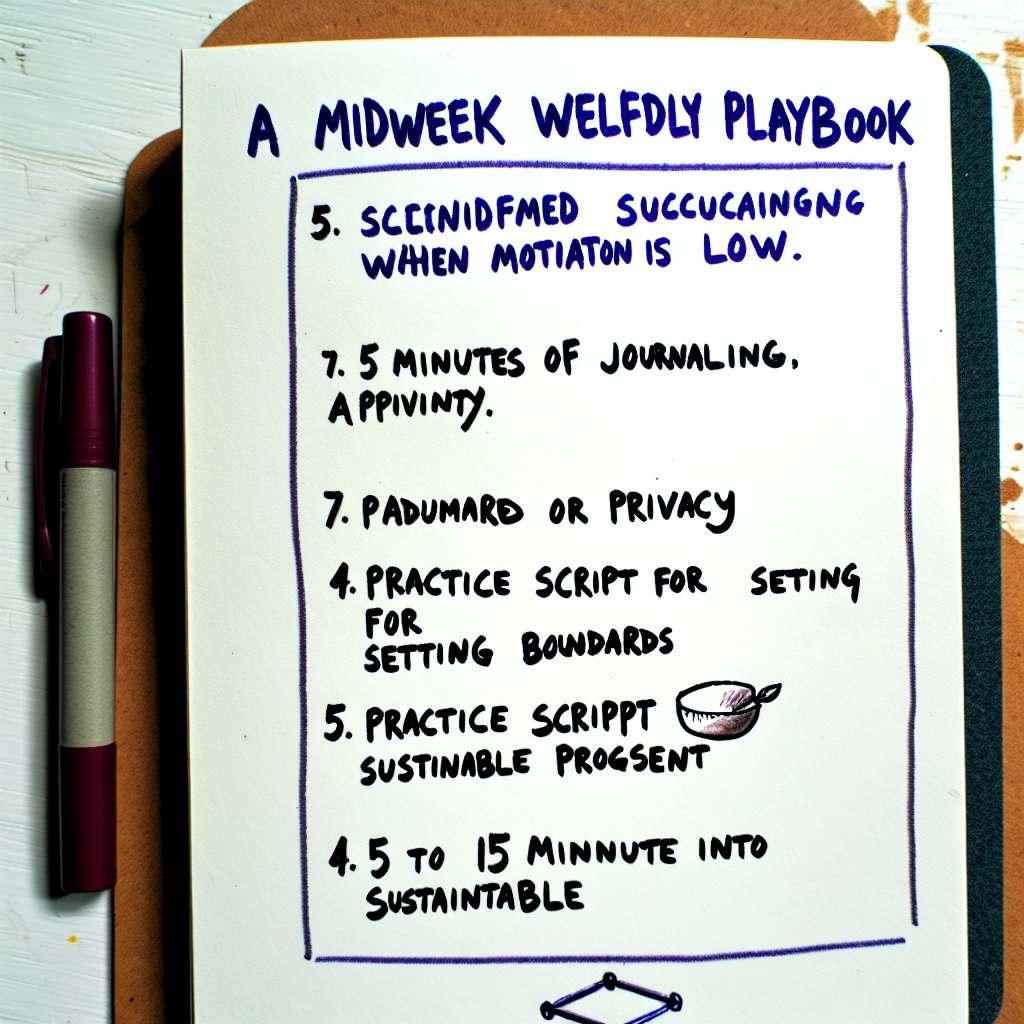 A MIDWEEK WELFDLY PLAYBOOK
5. SCCINIDFMED SUCCUCAINGNG
WHEN MOTIATON IS LOW.
7. 5 MINUTES OF JOURNALING,
APPIVINTY.
7. PADUMARD OR PRIVACY
4. PRACTICE SCRIPT FOR SETING
FOR
SETTING BOUNDARDS
5. PRACTICE SCRIPPT
SUSTINABLE PROGSENT
4. 5 TO 15 MINNUTE INTO
SUSTAINTABLE